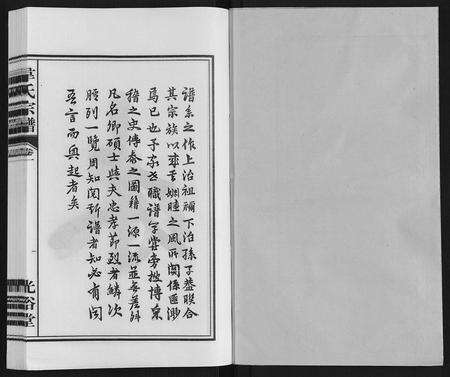 譜系之作上治祖禰下治孫子葢聯合
其宗族以肅雍姻睦之風所關係匪渺
焉已也予家世職譜學嘗旁搜博采
稽之史傳參之圖籍一源一流並無舛
凡名卿碩士與夫忠孝節烈者鱗次
臚列一覽周知閱斯譜者知必有聞
吾言而興起者矣
韋氏宗譜
卷
一
北裕堂